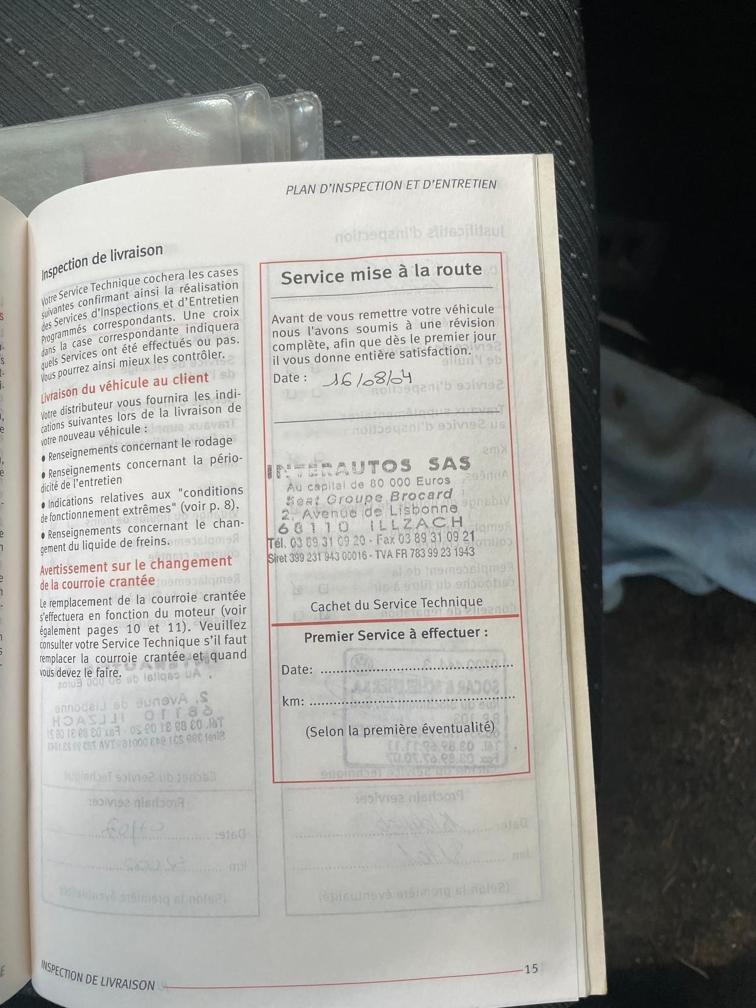 PLAN D'INSPECTION ET D'ENTRETIEN
Inspection de livraison
Votre Service Technique cochera les cases
suivantes confirmant ainsi la réalisation
des Services d'Inspections et d'Entretien
Programmés correspondants. Une croix
dans la case correspondante indiquera
quels Services ont été effectués ou pas.
Vous pourrez ainsi mieux les contrôler.
Livraison du véhicule au client
Votre distributeur vous fournira les indi-
cations suivantes lors de la livraison de
votre nouveau véhicule :
• Renseignements concernant le rodage
• Renseignements concernant la pério-
dicité de l'entretien
• Indications relatives aux "conditions
de fonctionnement extrêmes" (voir p. 8).
• Renseignements concernant le chan-
gement du liquide de freins.
Avertissement sur le changement
de la courroie crantée
Le remplacement de la courroie crantée
s'effectuera en fonction du moteur (voir
également pages 10 et 11). Veuillez
consulter votre Service Technique s'il faut
remplacer la courroie crantée et quand
vous devez le faire.
Service mise à la route
Avant de vous remettre votre véhicule
nous l'avons soumis à une révision
complète, afin que dès le premier jour
il vous donne entière satisfaction.
Date : 16/08/04
INTERAUTOS SAS
Au capital de 80 000 Euros
Seat Groupe Brocard
2, Avenue de Lisbonne
68110 ILLZACH
Tél. 03 89 31 09 20 - Fax 03 89 31 09 21
Siret 399 231 943 00016 - TVA FR 783 99 23 1943
Cachet du Service Technique
Premier Service à effectuer :
Date:
km:
(Selon la première éventualité)
INSPECTION DE LIVRAISON
15